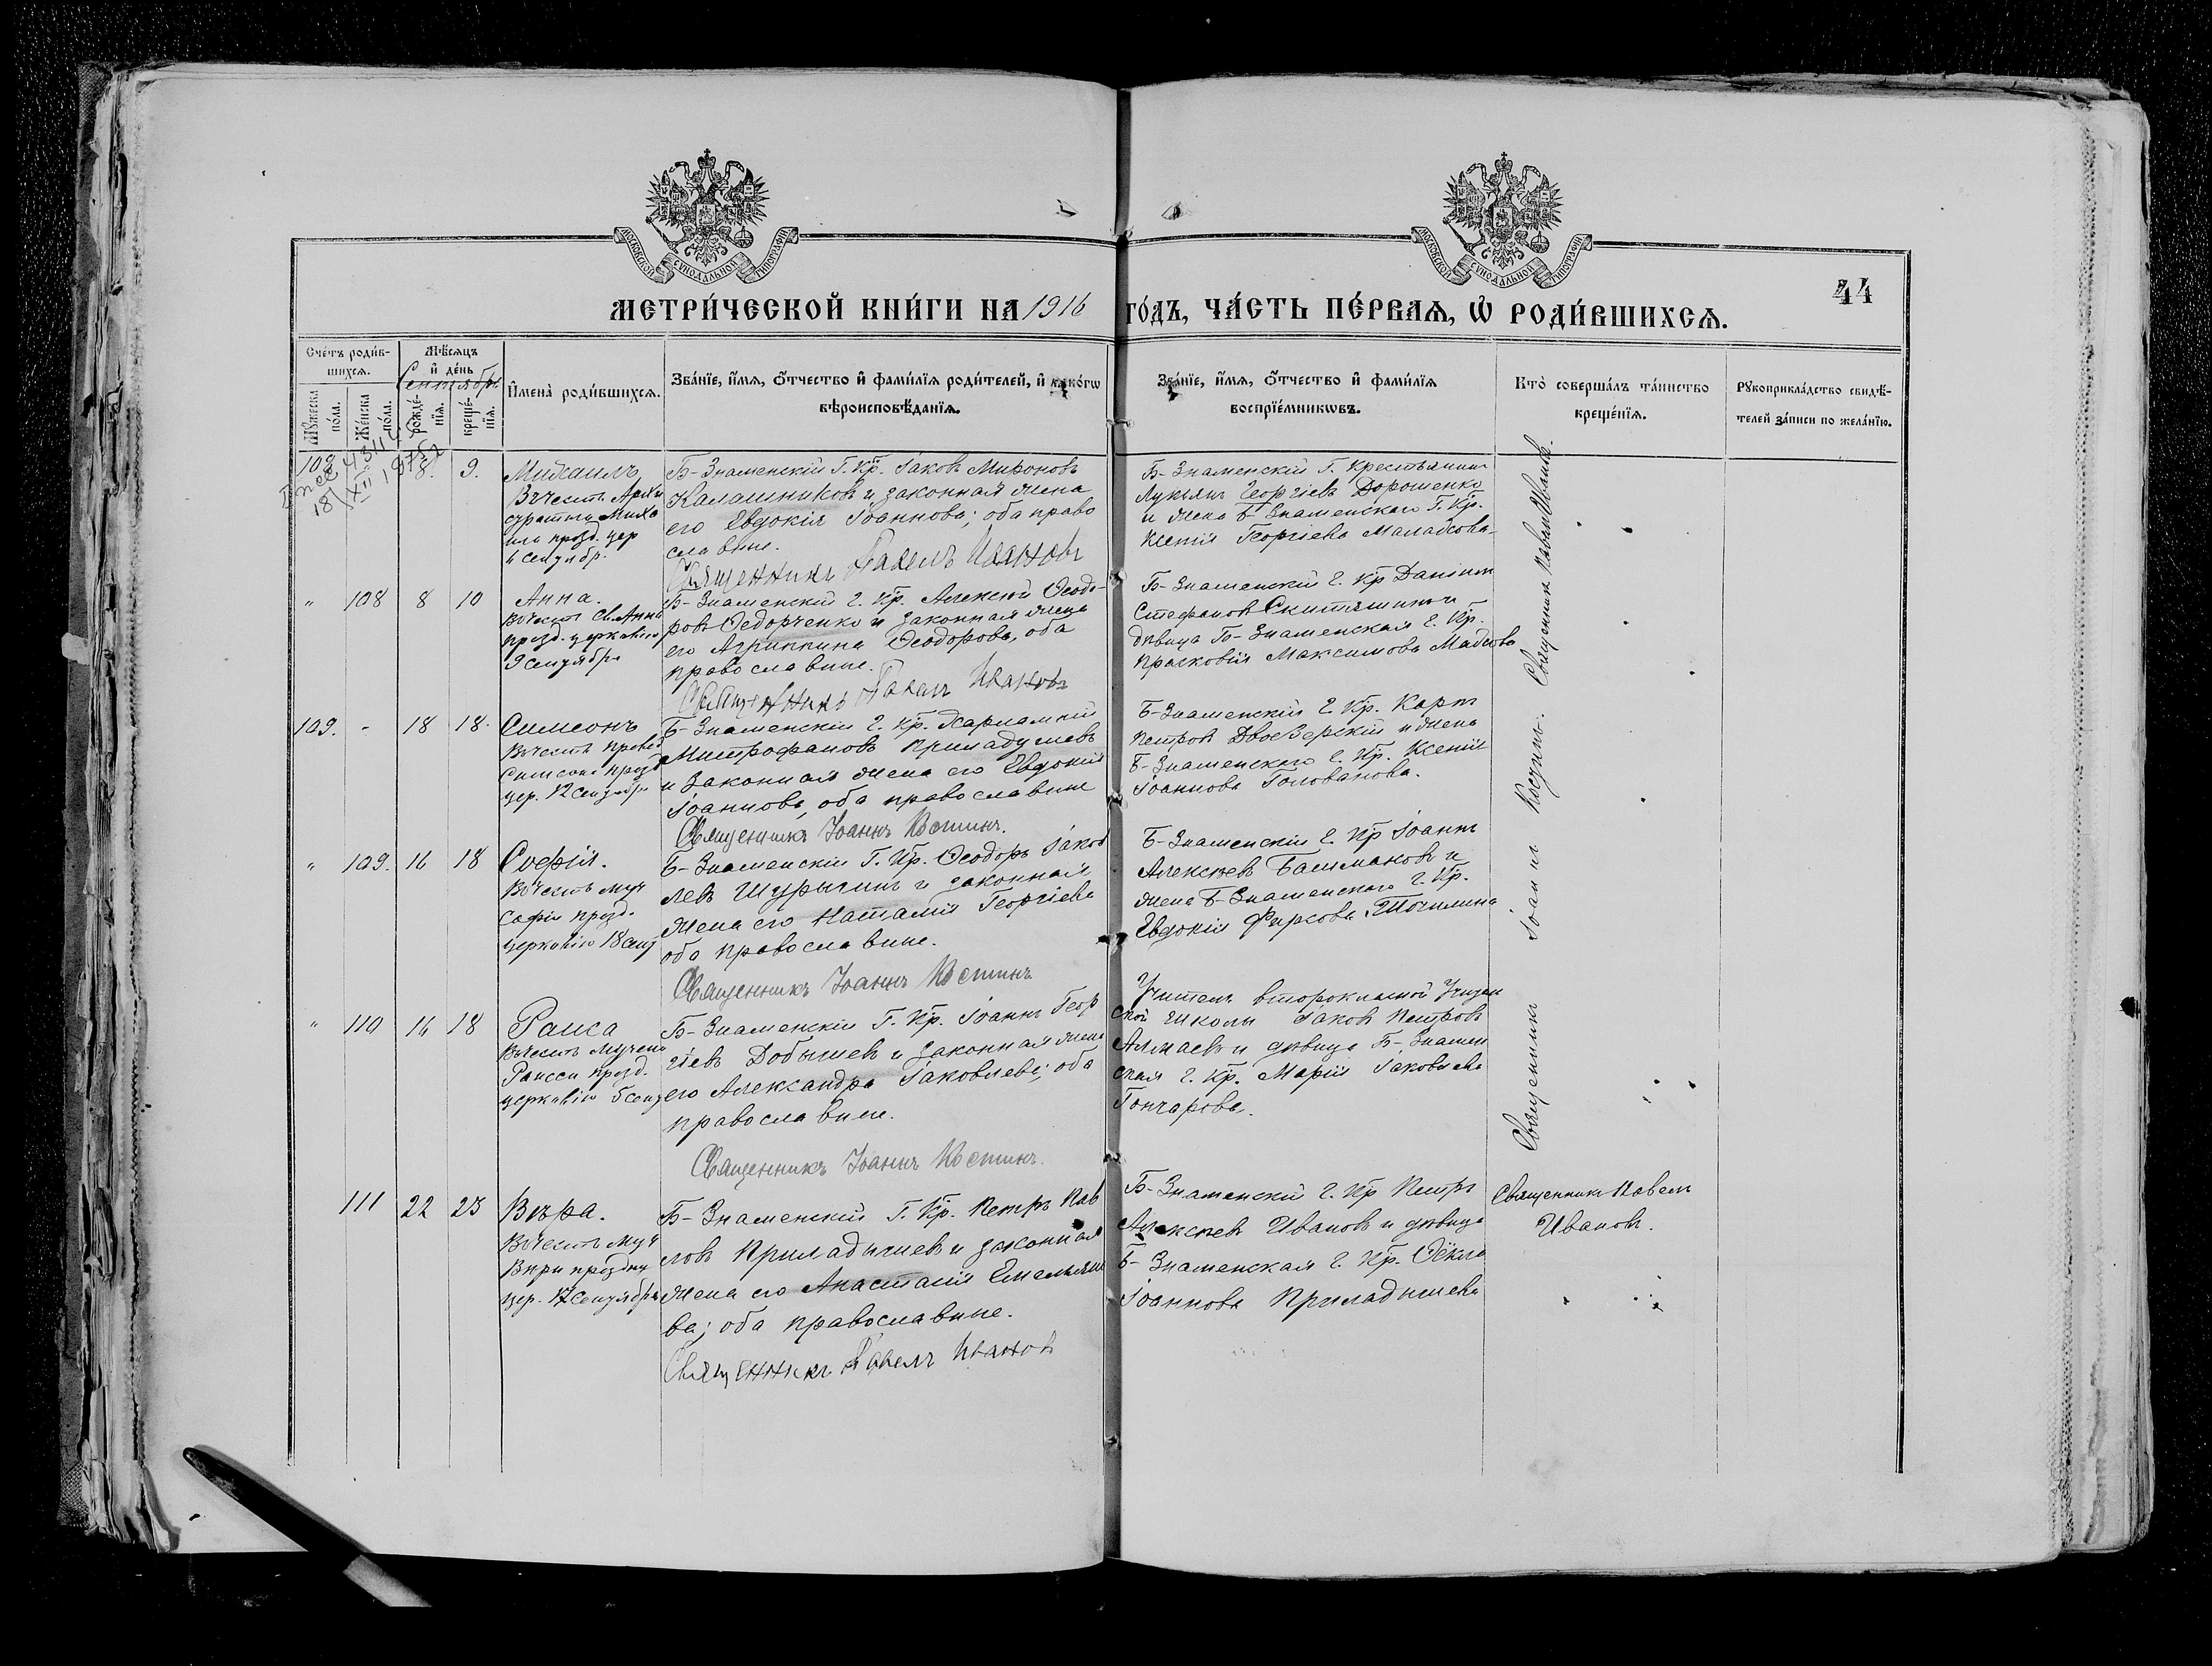 МОСКОВСКОЙ СѴНОДАЛЬНОЙ ТИПОГРАФІИ
МОСКОВСКОЙ СѴНОДАЛЬНОЙ ТИПОГРАФІИ
МЕТРИ́ЧЕСКОЙ КНИ́ГИ НА 1916 ГО́ДЪ, ЧА́СТЬ ПЕ́РВАѦ, Ѡ҆ РОДИ́ВШИХСѦ.
44
Сче́тъ роди́в-
шихсѧ.
Мꙋ́жеска по́ла.
Же́нска по́ла.
Мѣ́сѧцъ
и҆ де́нь
Сентябрь
рожде́-
нїѧ.
креще́-
нїѧ.
И҆мена̀ роди́вшихсѧ.
Зва́нїе, и҆́мѧ, ѻ҆́тчество и҆ фами́лїѧ роди́телей, и҆ како́гѡ
вѣроисповѣ́данїѧ.
Зва́нїе, и҆́мѧ, ѻ҆́тчество и҆ фами́лїѧ
воспрїе́мникѡвъ.
Кто̀ соверша́лъ та́инство
креще́нїѧ.
Рꙋкоприкла́дство свидѣ́-
телей за́писи по жела́нїю.
8. 9.
Михаилъ
Въ честь Архи
стратига Миха
ила празд. цер
6 сентябр.
Б-Знаменскій Г. Кр. Іаковъ Мироновъ
Калашниковъ и законная жена
его Евдокія Іоаннова; оба право
славные.
Священникъ Павелъ Ивановъ
Б-Знаменскій Г. Крестьянинъ
Лукьянъ Георгіевъ Дорошенко
и жена Б-Знаменскаго Г. Кр.
Ксенія Георгіева
" 108 8 10
Анна.
Въ честь Св. Анны
празд. церковію
9 сентября
Б-Знаменскій г. Кр. Алексій Ѳеодо-
ровъ Ѳедорченко и законная жена
его Агриппина Ѳеодорова, оба
православные.
Священникъ Павелъ Ивановъ
Б-Знаменскій г. Кр Даніилъ
Стефановъ и
дѣвица Б-Знаменская г. Кр.
Прасковія Максимова
109. - 18 18.
Симеонъ
Въ честь Правед
Симеона празд
цер. 12 сентября
Б-Знаменскій г. Кр. Харлампій
Митрофановъ
и законная жена его Евдокія
Іоаннова, оба православные
Священникъ Іоаннъ Костинъ.
Б-Знаменскій г. Кр. Карпъ
Петровъ и жена
Б-Знаменского г. Кр. Ксенія
Іоаннова Голованова.
" 109. 16 18
Софія.
Въ честь муч
Софіи празд.
церковію 18 сент
Б-Знаменскій Г. Кр. Ѳеодоръ Іаков
левъ Шурыгинъ и законная
жена его Наталія Георгіева
оба православные.
Священникъ Іоаннъ Костинъ
Б-Знаменскій г. Кр Іоаннъ
Алексѣевъ Башмаковъ и
жена Б-Знаменского г. Кр.
Евдокія Фирсова Точилина
" 110 16 18
Раиса
Въ честь мучени
Раисы празд.
церковію 5 сент
Б-Знаменскій Г. Кр. Іоаннъ Геор
гіевъ Добышев и законная жена
его Александра Іаковлева; оба
православные.
Священникъ Іоаннъ Костинъ.
Учитель второклассной
ской школы Іаковъ Петровъ
Алмаевъ и дѣвица Б-Знамен
ская г. Кр. Марія Іаковлева
Гончарова.
Священникъ Іоаннъ Костинъ. Священникъ Павелъ Иванов.
111 22 23
Вѣра.
Въ честь муч
Вѣры праздну
цер. 17 сентября
Б-Знаменскій Г. Кр. Петръ Пав
ловъ Приладышев и законная
жена его Анастасія Емельяно
ва; оба православные.
Священникъ Павелъ Иванов
Б-Знаменскій г. Кр Петръ
Алексѣевъ Ивановъ и дѣвица
Б-Знаменская г. Кр. Ѳёкла
Іоаннова Приладышева
Священникъ Павелъ
Ивановъ.